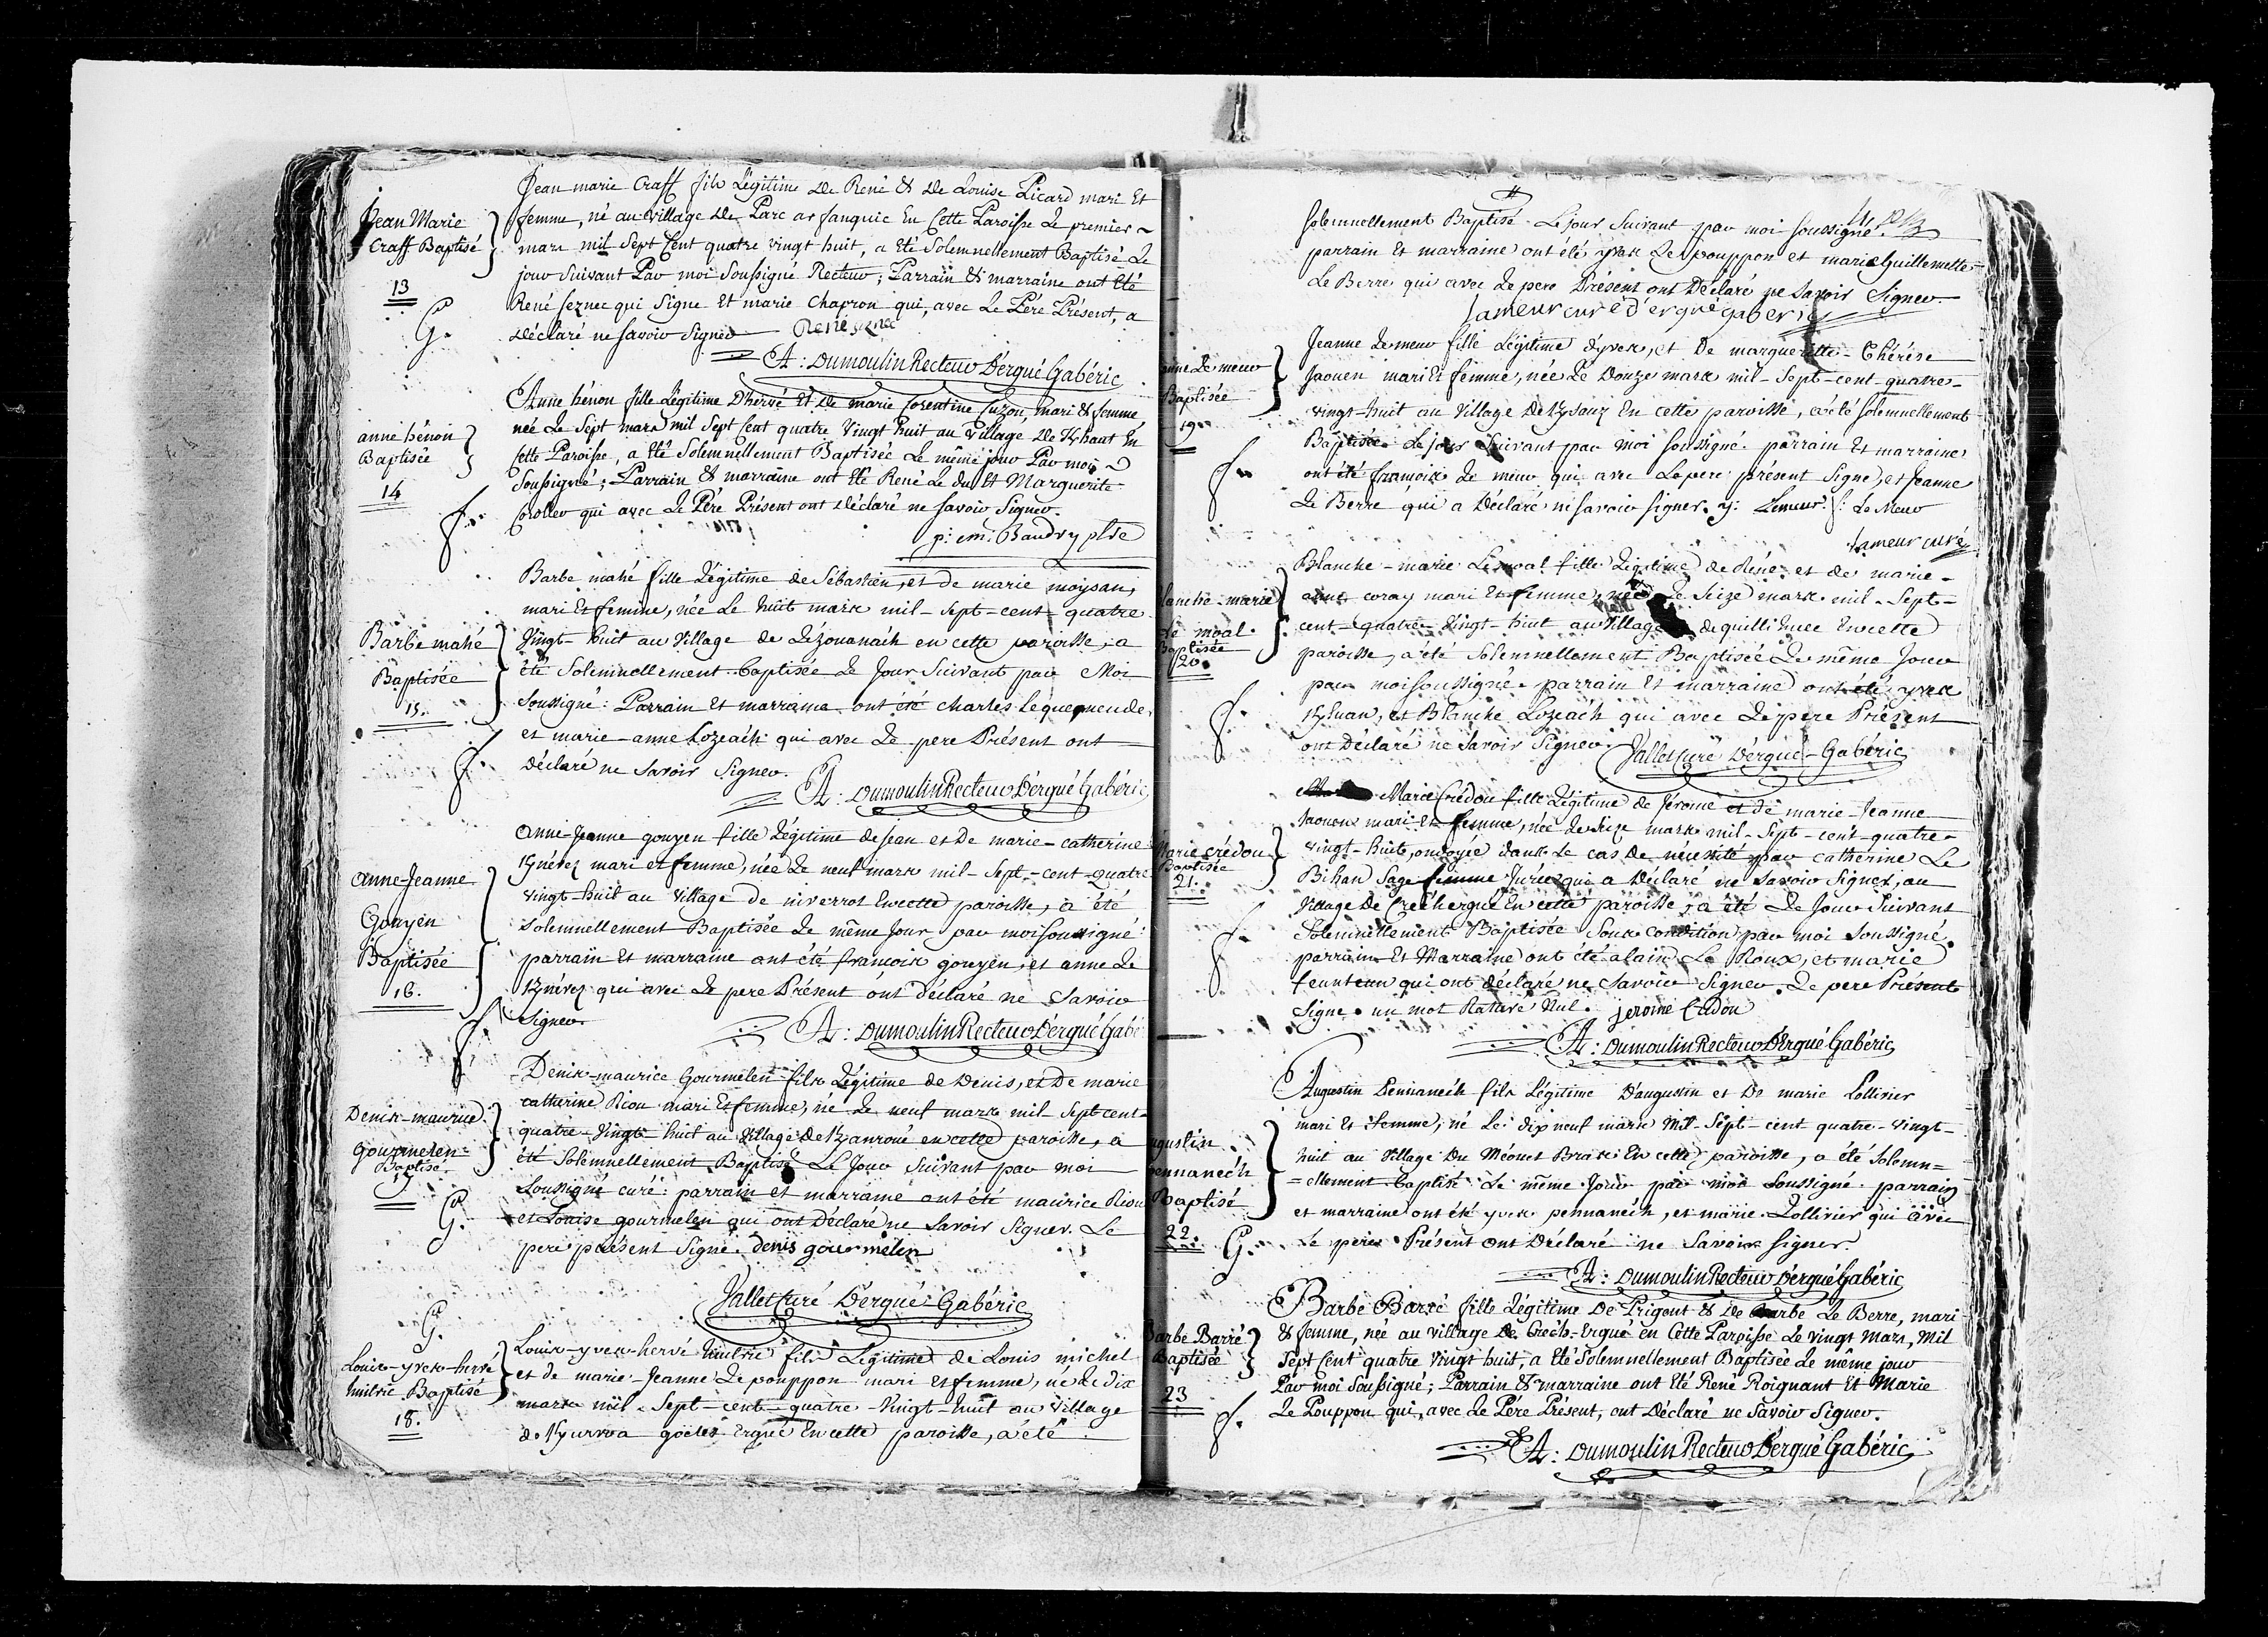 Jean Marie
Craff Baptisé
13
G.
Jean marie Craff fils Légitime de René & de Louise Picard mari Et
femme, né au village de Parc ar fanquic En Cette Paroisse Le premier
mars mil Sept Cent quatre vingt huit, a Eté Solemnellement Baptisé Le
jour Suivant Par moi Soussigné Recteur; Parrain & marraine ont Eté
René seznec qui Signe Et marie Chapron qui, avec Le Pére Présent, a
Déclaré ne savoir Signer René seznec
A: Dumoulin Recteur D'ergué Gabéric
anne hénon
Baptisée
14
f.
Anne hénon fille Légitime D'hervé Et de marie Corentine Cuzon, mari & femme
née Le Sept mars mil Sept Cent quatre Vingt huit au Village de K/haut En
Cette Paroisse, a Eté Solemnellement Baptisée Le même jour Par moi
Soussigné; Parrain & marraine ont Eté René Le du Et Marguerite
Coroller qui avec Le Pére Présent ont Déclaré ne savoir Signer.
p: em: Baudry ptre
Barbe mahé
Baptisée
15.
f.
Barbe mahé fille Légitime de Sébastien, et de marie moysan,
mari Et femme, née Le huit mars mil-Sept-cent-quatre
Vingt-huit au Village de Lézouanach en cette paroisse, a
été Solemnellement Baptisée Le Jour Suivant par Moi
Soussigné: Parrain Et marraine ont été charles Lequemende,
et marie-anne Lozeach qui avec Le pere Présent ont
Déclaré ne Savoir Signer.
A: Dumoulin Recteur D'ergué Gabéric
anne-Jeanne
Gouyen
Baptisée
16.
f.
anne-Jeanne gouyen fille Légitime de Jean et De marie-catherine
K/névez mari et femme, née Le neuf mars mil-Sept-cent-quatre
vingt-huit au Village de niverrot En cette paroisse, a été
Solemnellement Baptisée Le même Jour par moi Soussigné:
parrain Et marraine ont été francois gouyen, et anne Le
K/névez qui avec Le pere Présent ont déclaré ne Savoir
Signer.
A: Dumoulin Recteur D'ergué Gabé
Denis-maurice
gourmelen
Baptisé.
17
G.
Denis-maurice Gourmelen fils Légitime de Denis, et De marie
catherine Riou mari Et femme, né Le neuf mars mil Sept cent-
quatre-Vingt-huit au Village De K/anroué en cette paroisse, a
été Solemnellement Baptisé Le Jour Suivant par moi
Soussigné curé: parrain et marraine ont été maurice Riou
et Louise gourmelen qui ont Déclaré ne Savoir Signer. Le
pere présent Signe. denis gourmelen
Vallet Curé D'ergué-Gabéric
G.
Louis-yves-hervé
huitric Baptisé
18.
Louis-yves-hervé huitric fils Légitime de Louis michel
et de marie-Jeanne Le pouppon mari et femme, né le dix
mars mil-Sept-cent-quatre-Vingt-huit au Village
de K/ourvoa goëles Ergué En cette paroisse, a été
Solemnellement Baptisé Le jour Suivant par moi Soussigné.
parrain Et marraine ont été yves Le pouppon et marie Guillemette
Le Berre qui avec Le pere Présent ont Déclaré ne Savoir Signer
Lameur curé d'ergué gaberic
Le meur
Baptisée
19.
f.
Jeanne Le meur fille Légitime d'yves, et De marguerite-Thérèse
Jaouen mari Et femme, née Le Douze mars mil-Sept-cent-quatre-
vingt-huit au Village de K/sauz En cette paroisse, a été Solemnellement
Baptisée Le jour Suivant par moi Soussigné. parrain Et marraine
ont été francois Le meur qui avec Le pere présent Signe, et Jeanne
Le Berre qui a Déclaré ne savoir signer. y: Lemeur. f: Le Meur
Lameur curé
Blanche-marie
Le moal.
Baptisée
20.
f.
Blanche-marie Le moal fille Légitime de René, et de marie-
coray mari Et femme, née Le Seize mars mil-Sept-
cent-quatre-Vingt-huit au Village de quillihuec En cette
paroisse, a été Solemnellement Baptisée Le même Jour
par moi Soussigné. parrain Et marraine ont été yves
K/luan, et Blanche Lozeach qui avec Le pere Présent
ont Déclaré ne Savoir Signer. Vallet Curé D'ergué-Gabéric
Marie crédou
Baptisée
21.
f.
Marie Crédou fille Légitime de Jérome et de marie-Jeanne
Jaouen mari Et femme, née Le Seize mars mil-Sept-cent-quatre-
vingt-huit, ondoyée dans Le cas De nécessité par Catherine Le
Bihan Sage femme Jurée qui a Déclaré ne Savoir Signer, au
Village De Crec'hergué En cette paroisse, a été Le Jour Suivant
Solemnellement Baptisée Sous Condition par moi Soussigné.
parrain Et Marraine ont été alain Le Roux, et marie
feunteun qui ont déclaré ne Savoir Signer. Le pere Présent
Signe. un mot Raturé Nul. jerome Credou
A: Dumoulin Recteur D'Ergué Gabéric
Augustin
pennanech
Baptisé
22.
G.
Augustin Pennanech fils Légitime D'augustin et De marie Lollivier
mari Et femme, né Le dix neuf mars Mil-Sept-cent quatre-Vingt-
huit au Village Du Méouet Bras En cette paroisse, a été Solemn=
=ellement Baptisé Le même Jour par moi Soussigné. parrain
et marraine ont été yves pennanech, et marie Lollivier qui avec
Le pere Présent ont Déclaré ne Savoir Signer.
A: Dumoulin Recteur D'ergué Gabéric
Barbe Barré
Baptisée
23
f.
Barbe Barré fille Légitime De Prigent & de Barbe Le Berre, mari
& femme, née au Village de Crech-Ergué en Cette Paroisse Le vingt Mars, Mil
Sept Cent quatre Vingt huit, a Eté Solemnellement Baptisée Le même jour
Par moi Soussigné; Parrain & marraine ont Eté René Roignant Et Marie
Le Pouppon qui, avec Le Pére Présent, ont Déclaré ne Savoir Signer.
A: Dumoulin Recteur D'ergué Gabéric